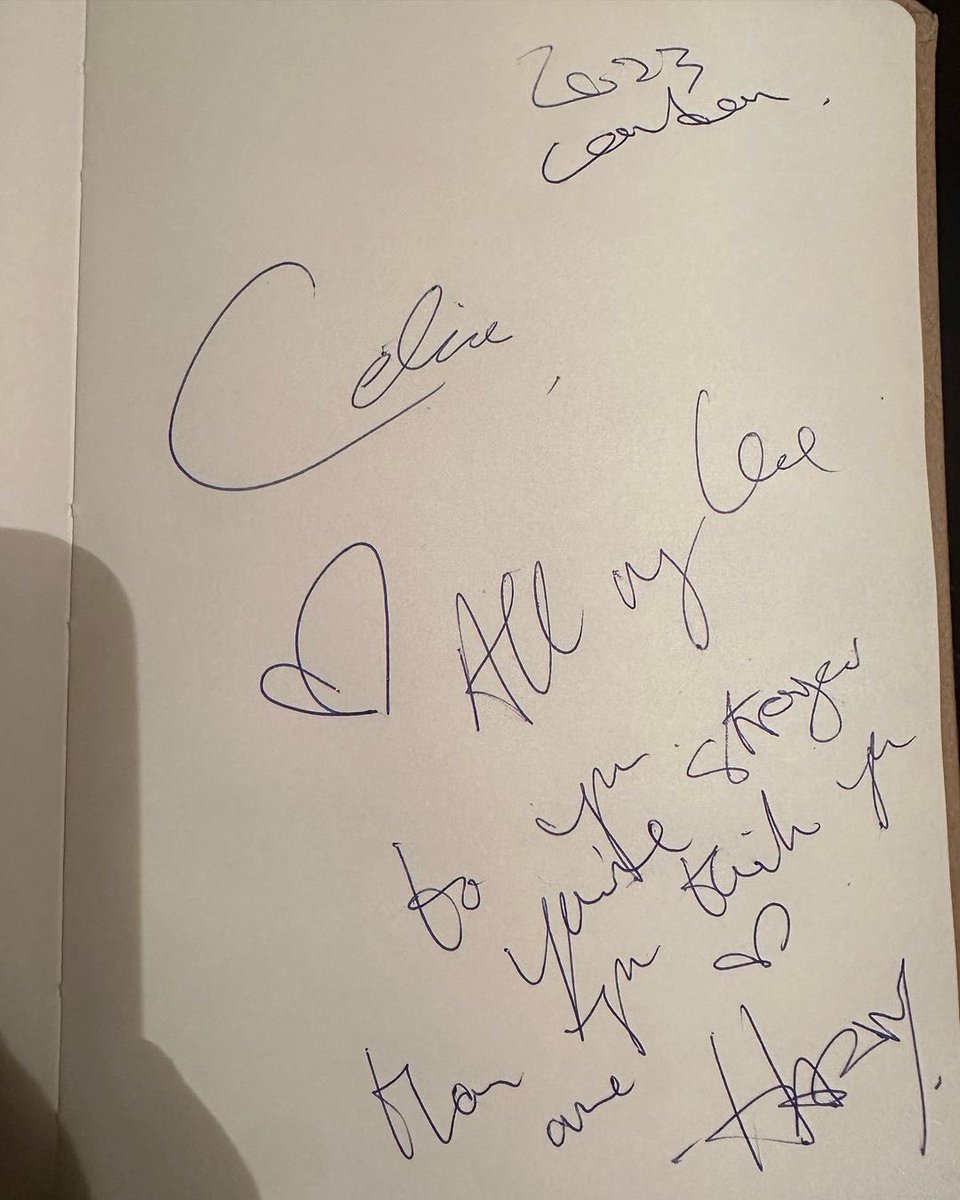 2023
London.
Celine,
♡ All my love
to you
you're stronger
than you think you
are ♡
HARRY.